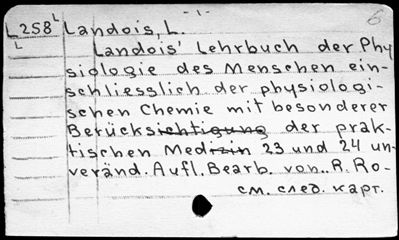 - 1 -
б
L258 Landois, L.
L
Landois' Lehrbuch der Phy
siologie des Menschen ein-
schliesslich der physiologi-
schen Chemie mit besonderer
Berücksichtigung der prak-
tischen Medizin 23 und 24 un-
veränd. Aufl. Bearb. von.. R. Ro-
см. след. карт.